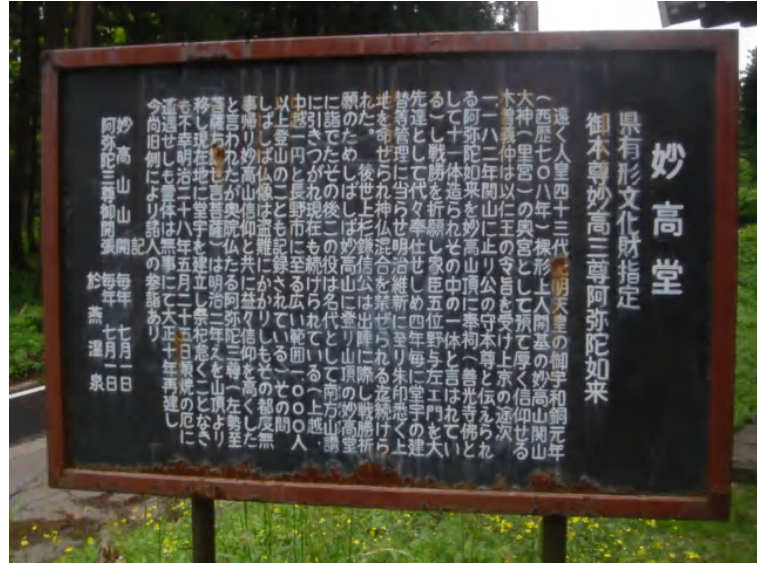 妙高堂
県有形文化財指定
御本尊妙高三尊阿弥陀如来
遠く人皇四十三代元明天皇の御宇和銅元年
(西歴七〇八年)裸形上人開基の妙高山関山
大神(里宮)の奥宮として預て厚く信仰せる
木曽義仲は以仁王の令旨を受け上京の途次
一一八二年関山に止り公の守本尊と伝えられ
る阿弥陀如来を妙高山頂に奉祠(善光寺佛と
して十一体造られその中の一体と言はれてい
る)し戦勝を祈願し家臣五位野与左エ門を大
先達として代々奉仕せしめ四年毎に堂宇の建
替等管理に当らせ明治維新に至り朱印悉く上
地を命ぜられ神仏混合を禁ぜられる迄続けら
れた。 後世上杉鎌信公は出陣に際し戦勝祈
願のためしばしば妙高山に登り山頂の妙高堂
に詣でたその後この役は名代として南方山講
に引きつがれ現在も続けられている(上越、
中越一円と長野市に至る広い範囲一〇〇〇人
以上登山のことも記録されている)その間
しばしば仏像は盗難にかかりしもその都度無
事帰り妙高山信仰と共に益々信仰を高くした
と言われたが奥院仏たる阿弥陀三尊(左勢至
菩薩右 言菩薩)は明治三年之を山頂より
移し現在地に堂宇を建立し祭祀怠ぐことなき
も不幸明治二十八年五月二十五日類焼の厄に
遭遇せしも霊体は無事にて大正十年再建し
今尚旧例により諸人の参詣あり
記
妙高山山開 毎年 七月一日
阿弥陀三尊御開張 毎年 七月一日
於 燕温泉